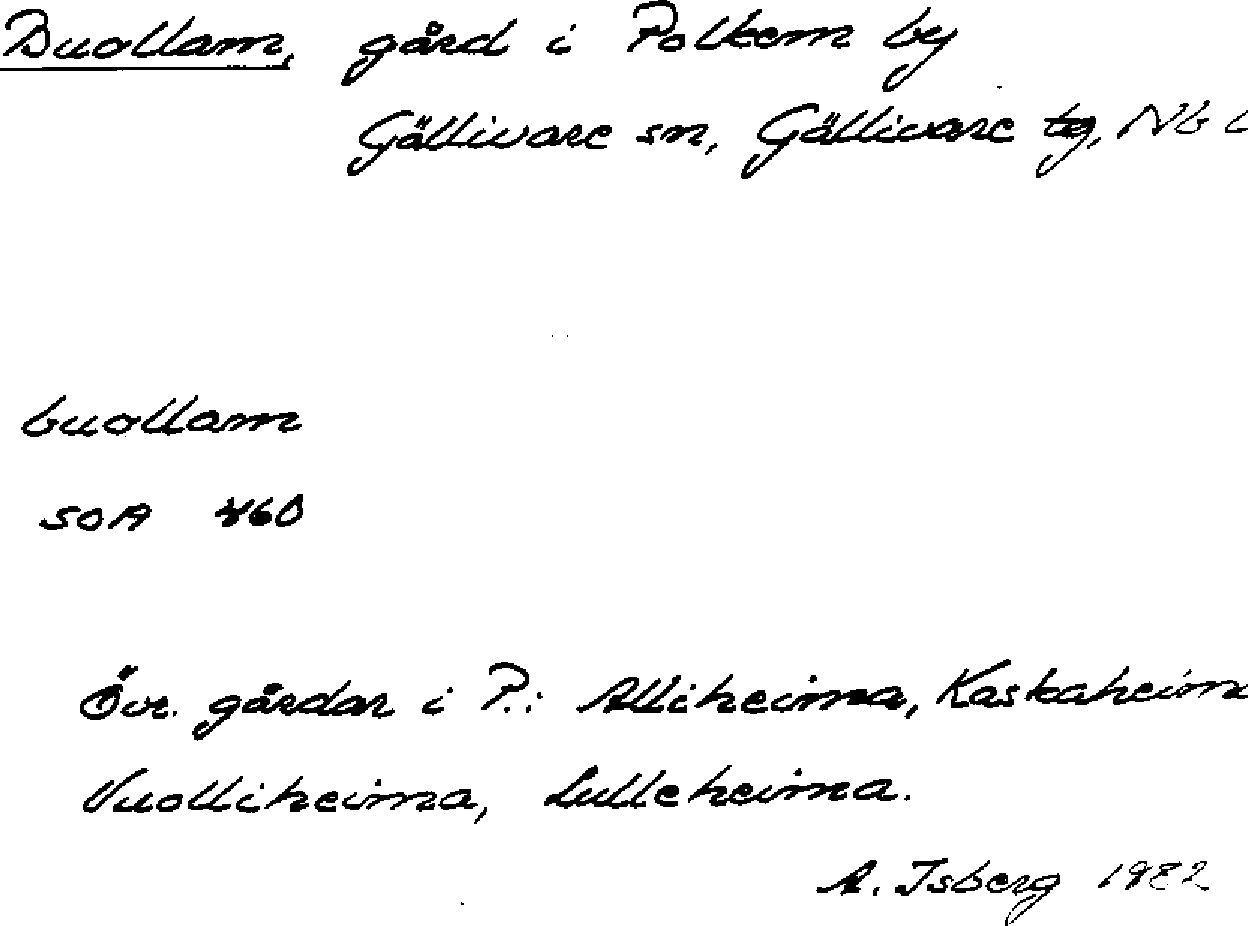 Buollam, gård i Polkem by
Gällivare sn, Gällivare tg, Nb L
buollam
SOA 460
Övr. gårdar i P.: Alliheima, Kaskaheima
Vuolliheima, Lulleheima.
A. Isberg 1982